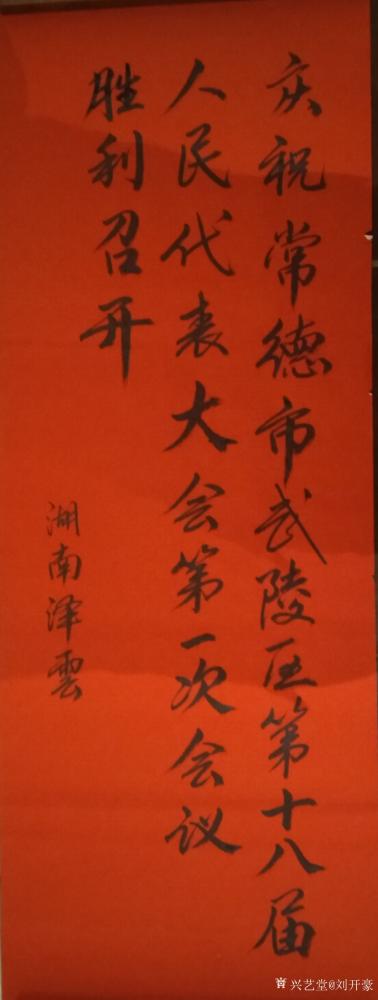 庆祝常德市武陵区第十八届
人民代表大会第一次会议
胜利召开
湖南泽雲
兴艺堂@刘开豪